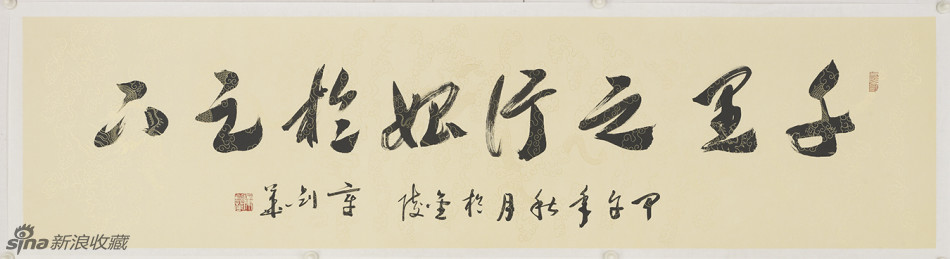 千里之行始於足下
甲午年秋月於金陵 章剑华
sina 新浪收藏